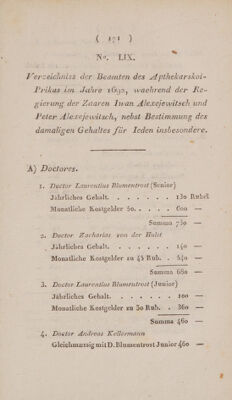 ( 171 )
No. LIX.
Verzeichniss der Beamten des Apthekarskoi-
Prikas im Jahre 1690, waehrend der Re-
gierung der Zaaren Iwan Alexejewitsch und
Peter Alexejewitsch, nebst Bestimmung des
damaligen Gehaltes für Ieden insbesondere.
A) Doctores.
1. Doctor Laurentius Blumentrost (Senior)
Jährliches Gehalt. . . . . . . 130 Rubel
Monatliche Kostgelder 50. . . . . 600 —
Summa 730 —
2. Doctor Zacharias von der Hulst
Jährliches Gehalt. . . . . . . 140 —
Monatliche Kostgelder zu 45 Rub. . 540 —
Summa 680 —
3. Doctor Laurentius Blumentrost (Junior)
Jährliches Gehalt. . . . . . . 100 —
Monatliche Kostgelder zu 30 Rub. . 360 —
Summa 460 —
4. Doctor Andreas Kellermann
Gleichmässig mit D. Blumentrost Junior 460 —